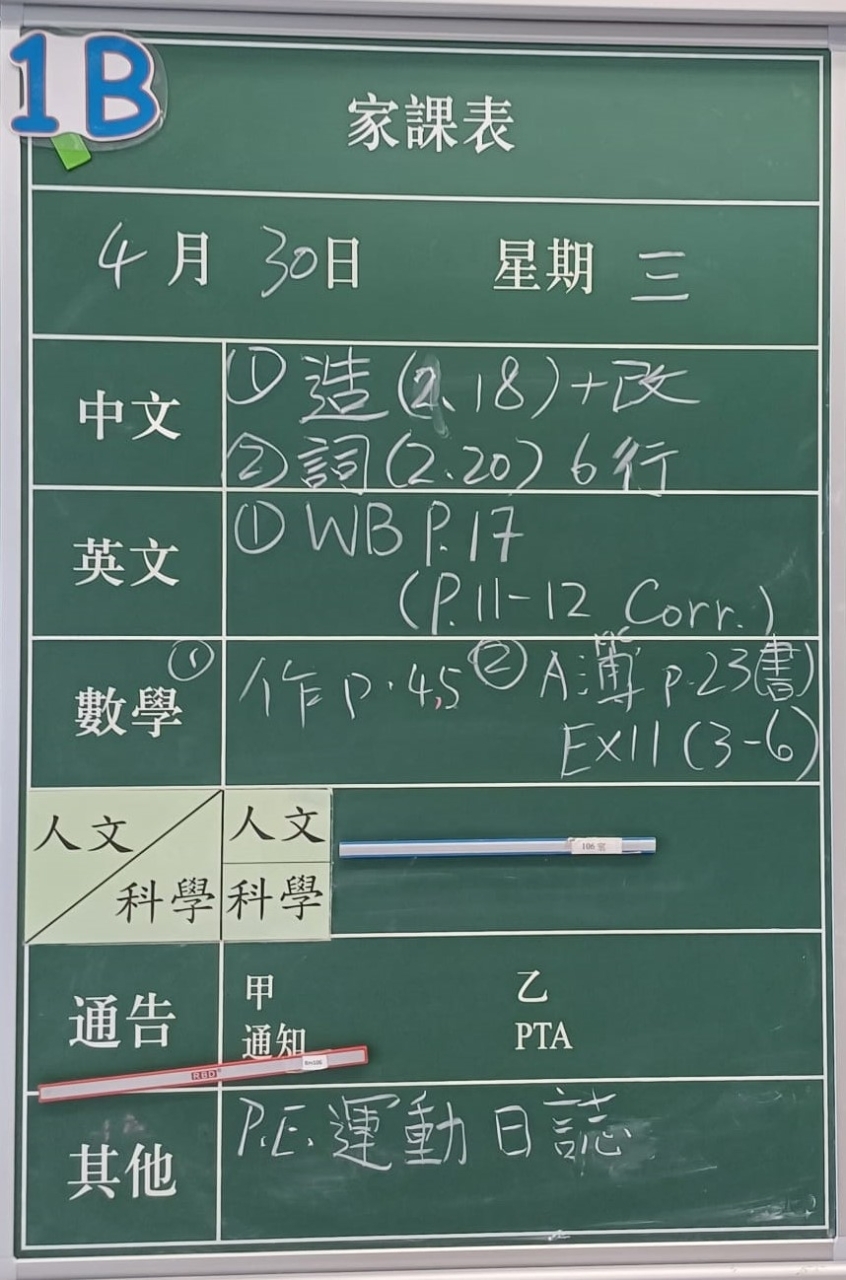 1B
家課表
4月30日 星期三
中文
① 造(2.18)+改
② 詞(2.20) 6行
英文
① WB P.17
(P.11-12 Corr.)
數學
① 作 p.4,5 ② A簿 p.23(書)
Ex11 (3-6)
人文
科學
人文
科學
106室
通告
甲 乙
通知 PTA
RBD
Rm106
其他
P.E. 運動日誌